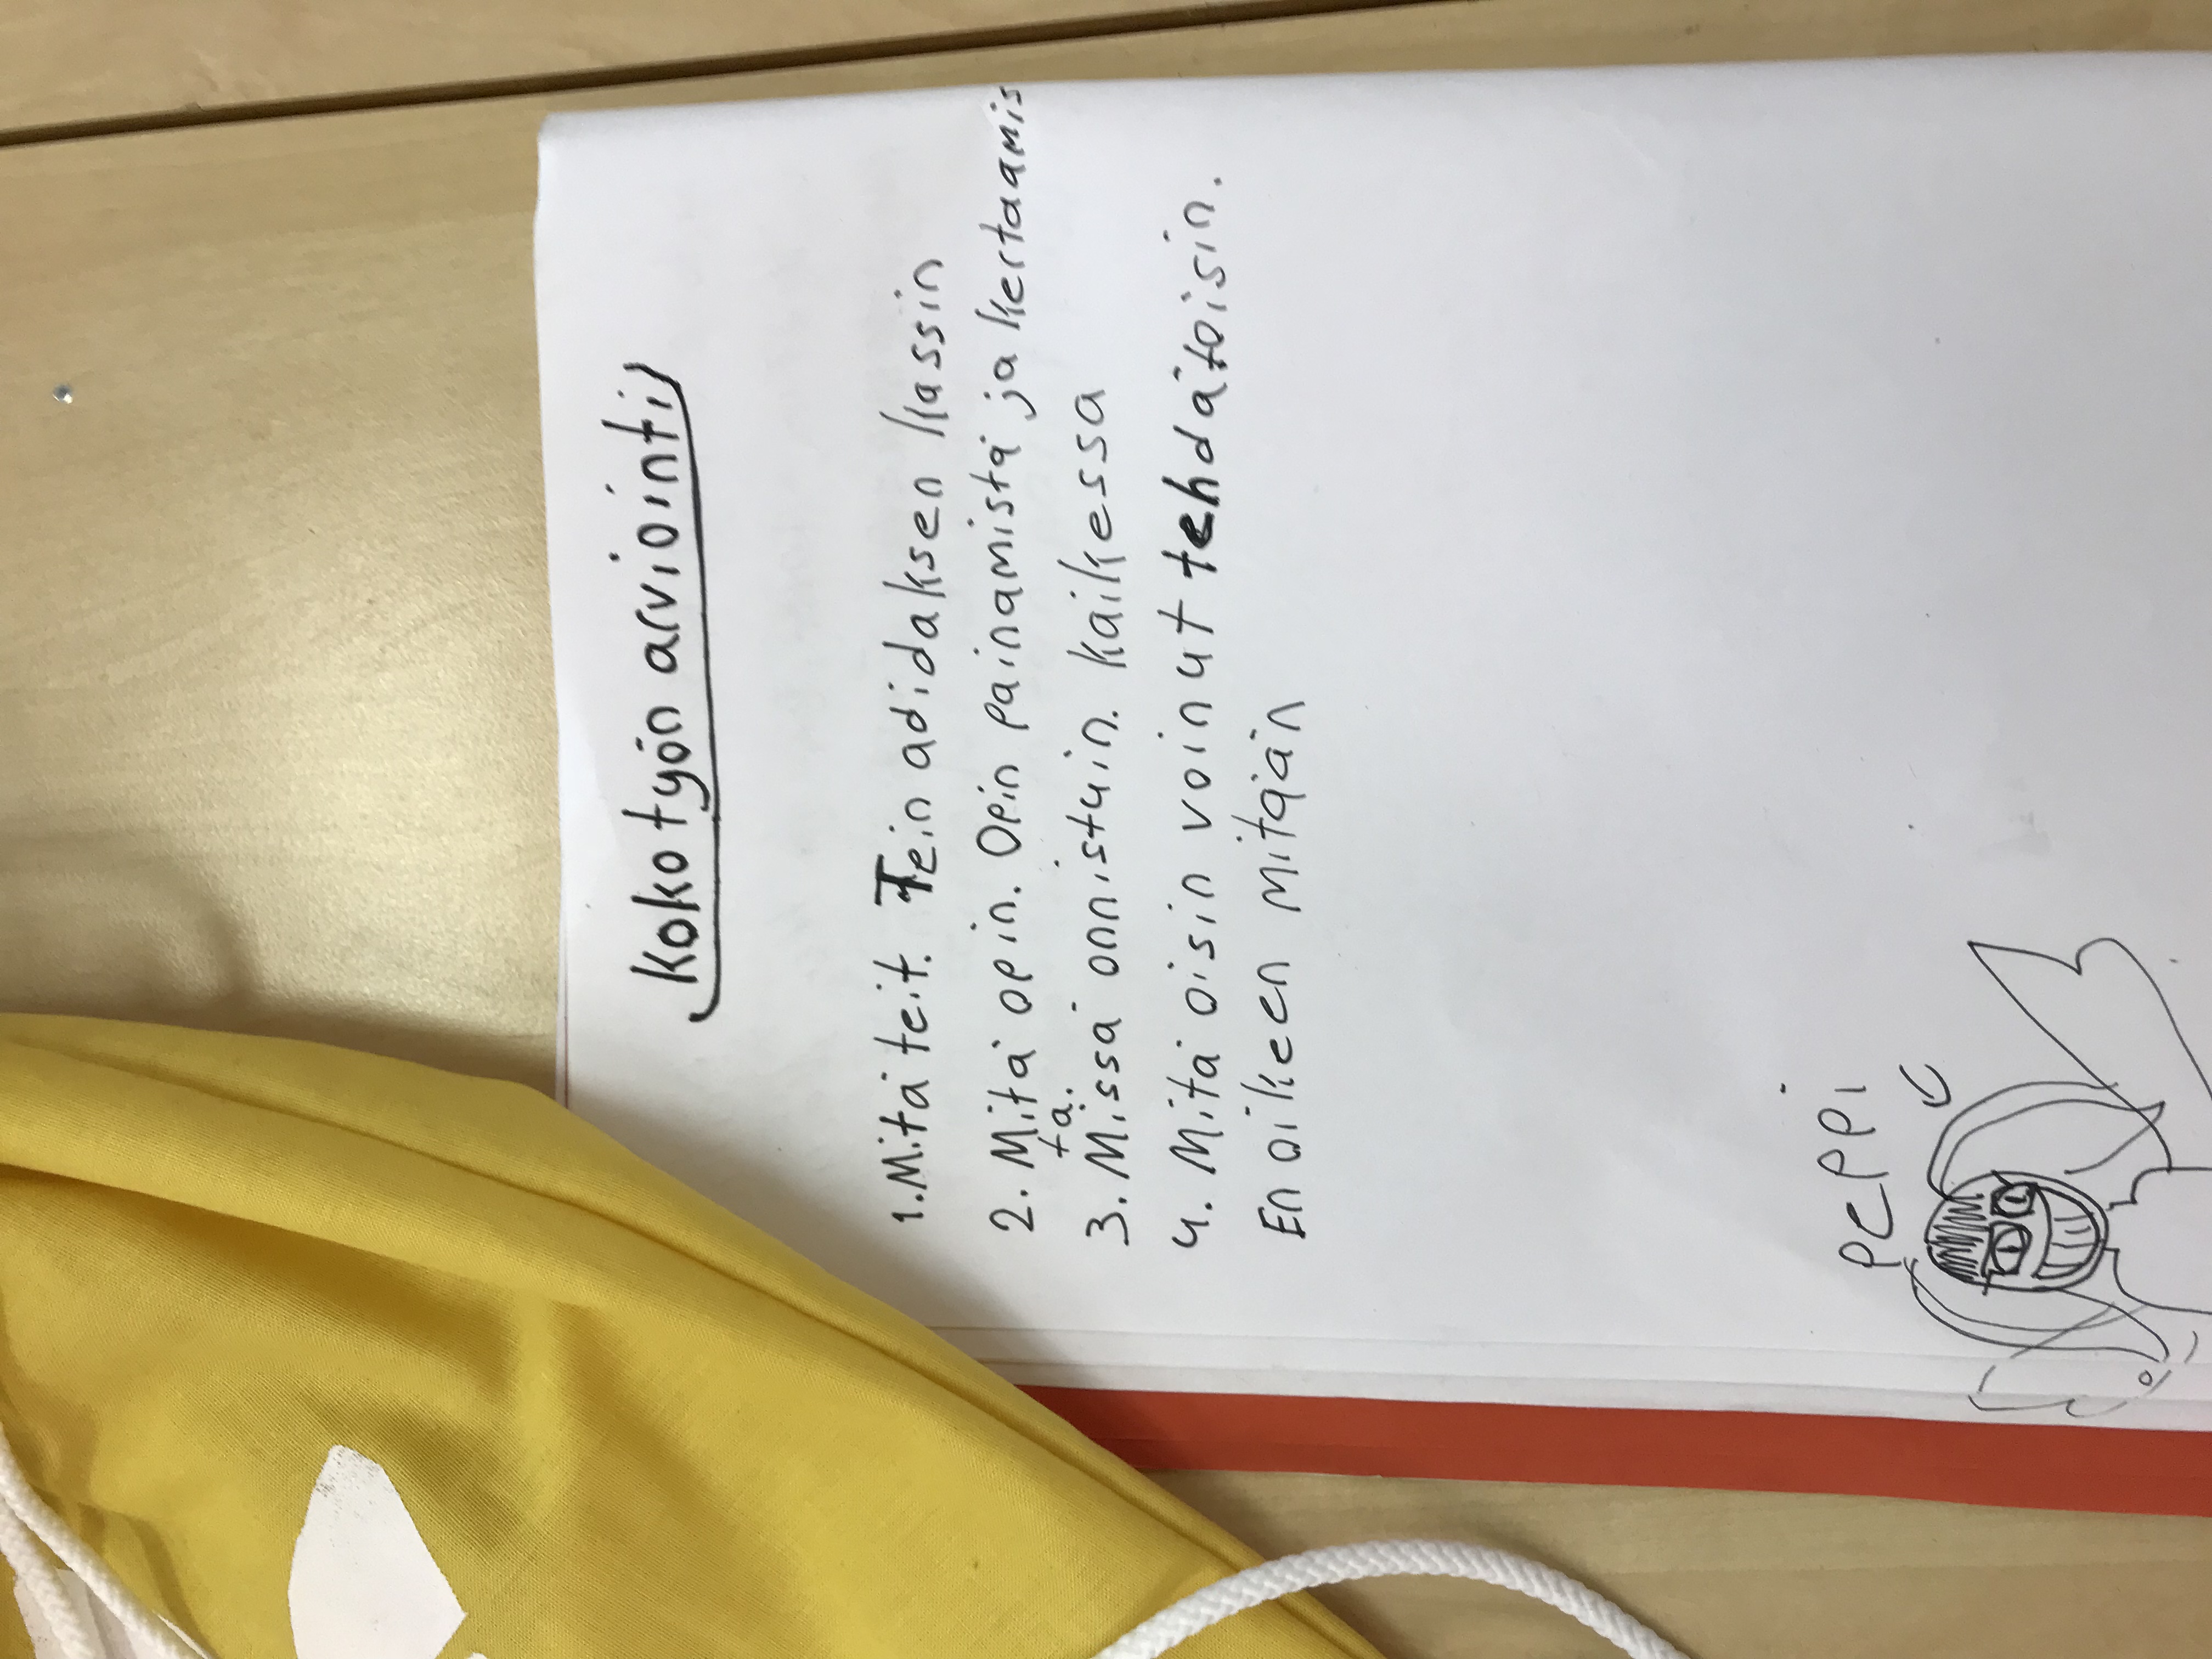 Koko työn arviointi
1. Mitä teit. Tein adidaksen kassin
2. Mitä opin. Opin painamista ja kertaamis
tä.
3. Missä onnistuin. kaikessa
4. Mitä oisin voinut tehdä toisin.
En oikeen mitään
PEPPI